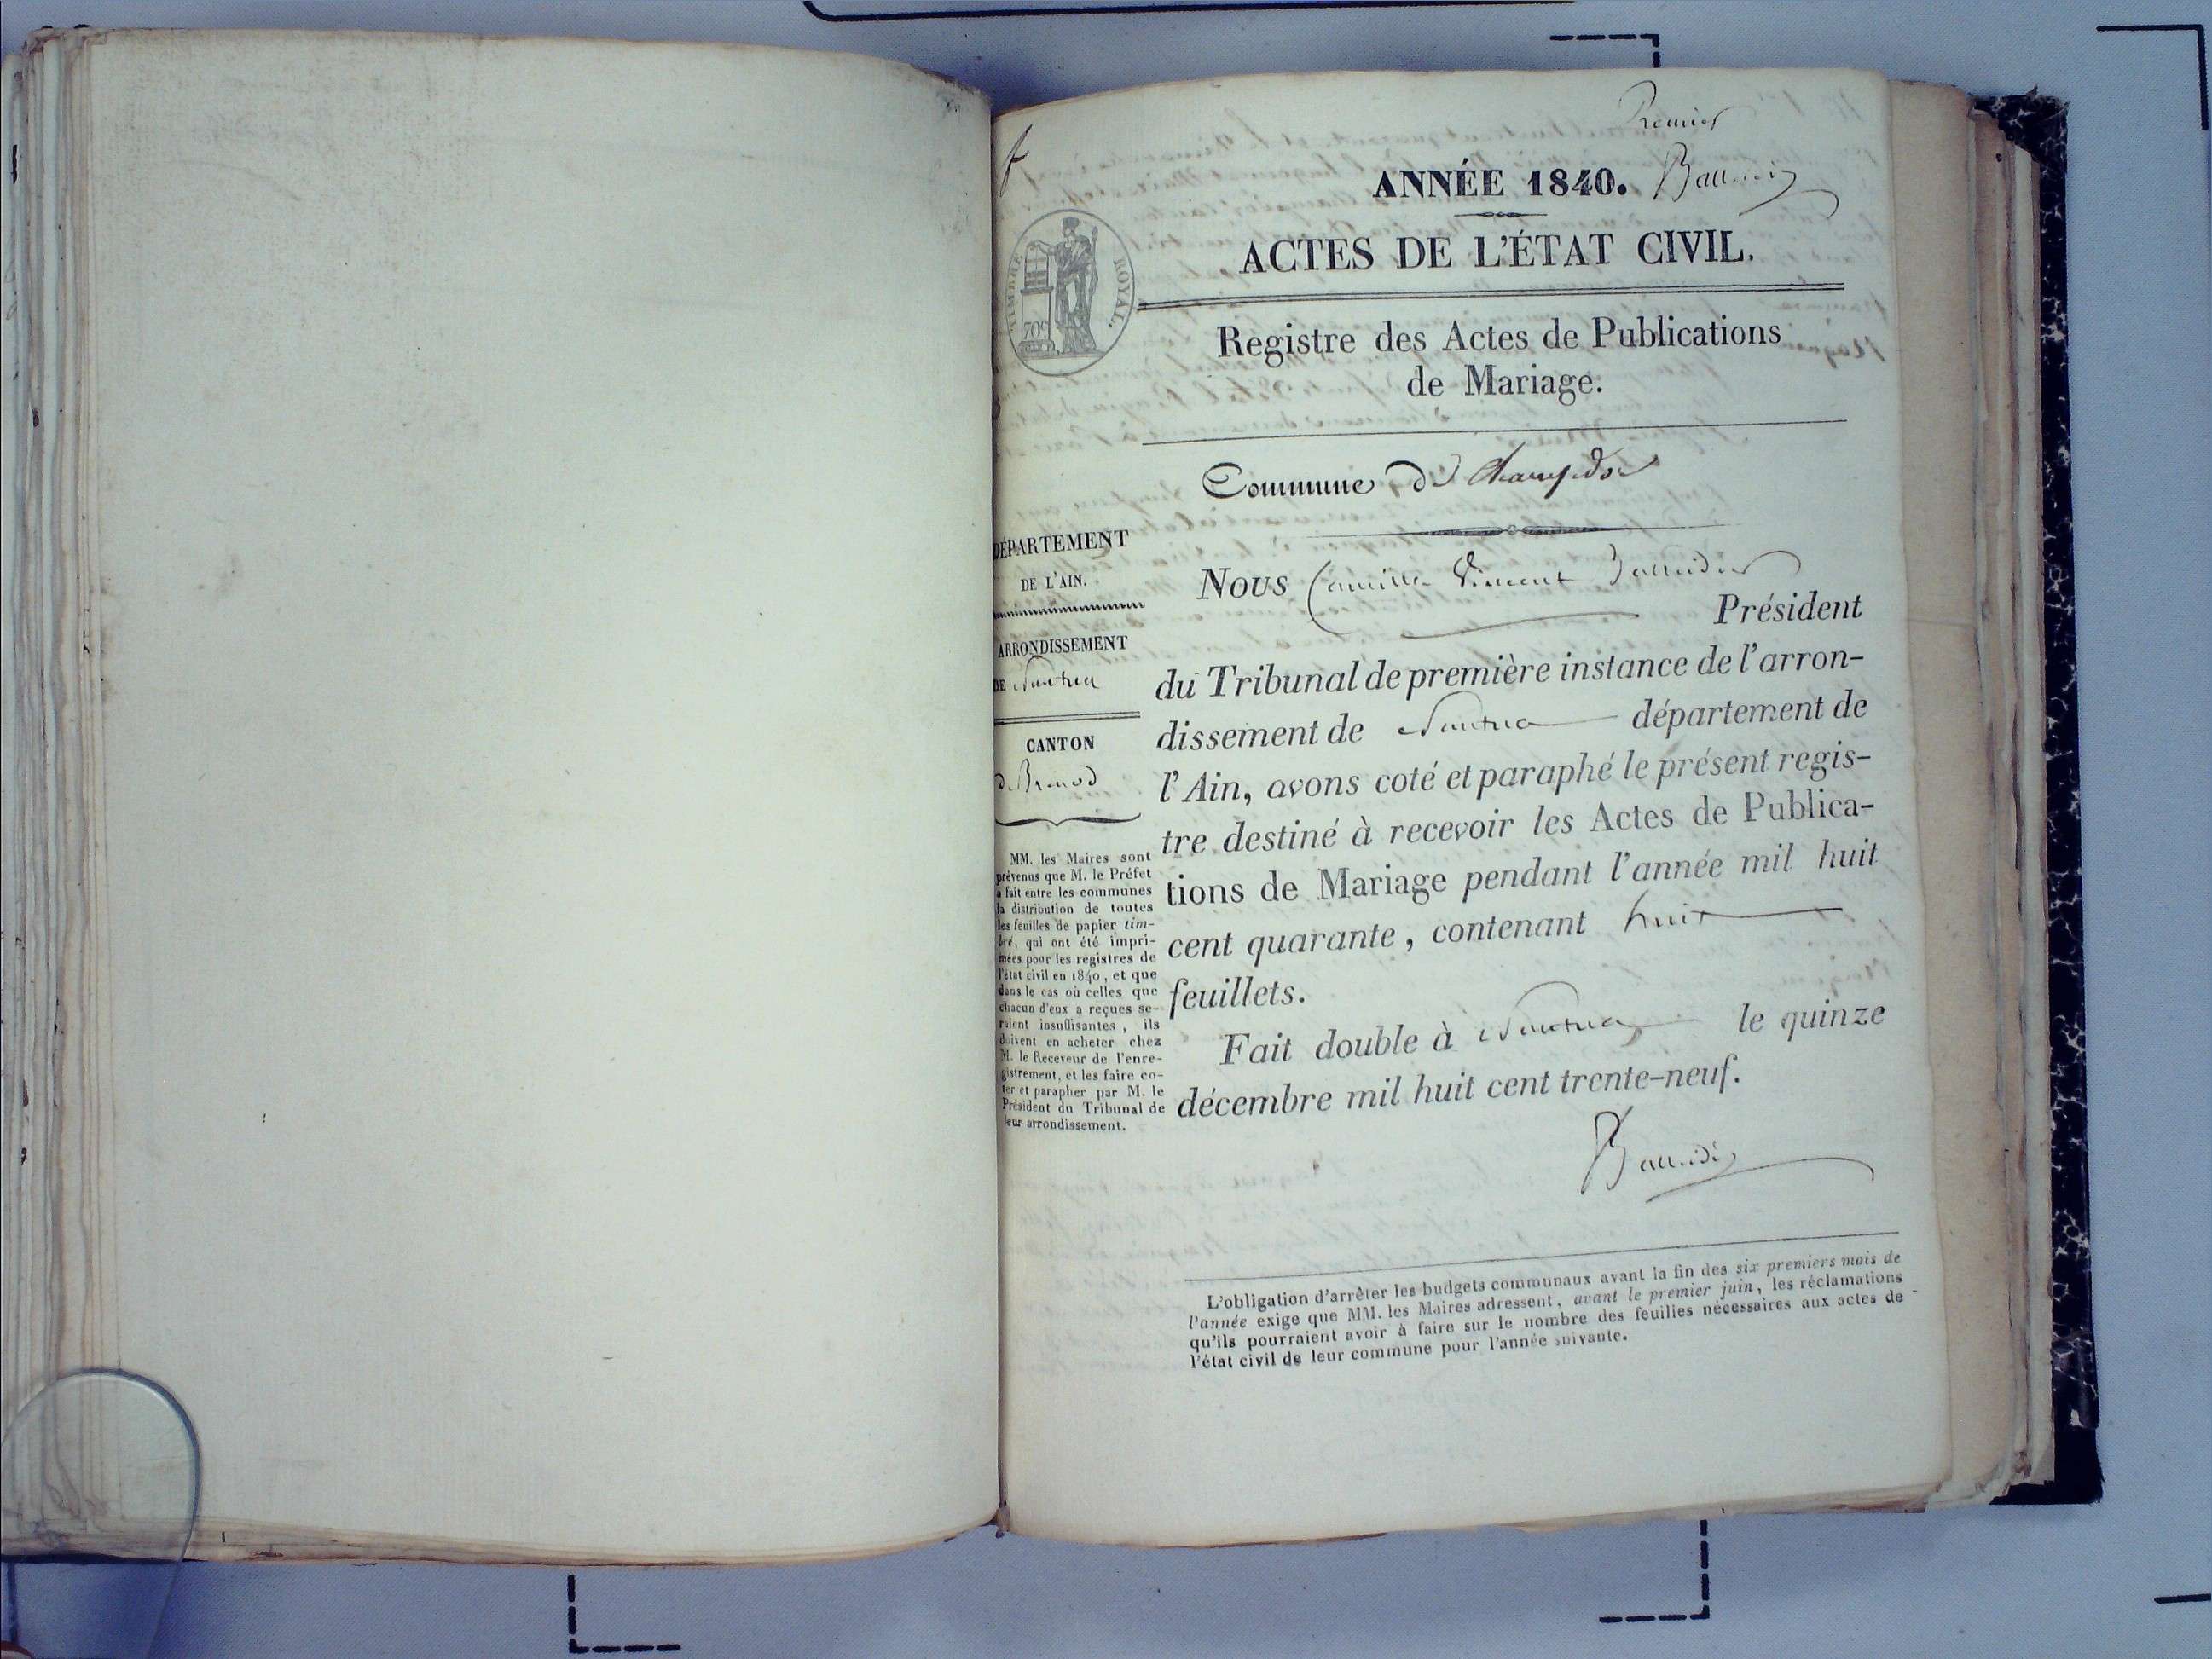 Premier
ANNÉE 1840.
ACTES DE L'ÉTAT CIVIL.
TIMBRE ROYAL.
Registre des Actes de Publications
de Mariage.
Commune de Champdor
DÉPARTEMENT
DE L'AIN.
ARRONDISSEMENT
DE Nantua
CANTON
de Brenod
MM. les Maires sont
prévenus que M. le Préfet
a fait entre les communes
la distribution de toutes
les feuilles de papier tim-
bré, qui ont été impri-
mées pour les registres de
l'état civil en 1840, et que
dans le cas où celles que
chacun d'eux a reçues se-
raient insuffisantes, ils
doivent en acheter chez
M. le Receveur de l'enre-
gistrement, et les faire co-
ter et parapher par M. le
Président du Tribunal de
leur arrondissement.
Nous Camille Vincent
Président
du Tribunal de première instance de l'arron-
dissement de Nantua département de
l'Ain, avons coté et paraphé le présent regis-
tre destiné à recevoir les Actes de Publica-
tions de Mariage pendant l'année mil huit
cent quarante, contenant huit
feuillets.
Fait double à Nantua le quinze
décembre mil huit cent trente-neuf.
L'obligation d'arrêter les budgets communaux avant la fin des six premiers mois de
l'année exige que MM. les Maires adressent, avant le premier juin, les réclamations
qu'ils pourraient avoir à faire sur le nombre des feuilles nécessaires aux actes de
l'état civil de leur commune pour l'année suivante.